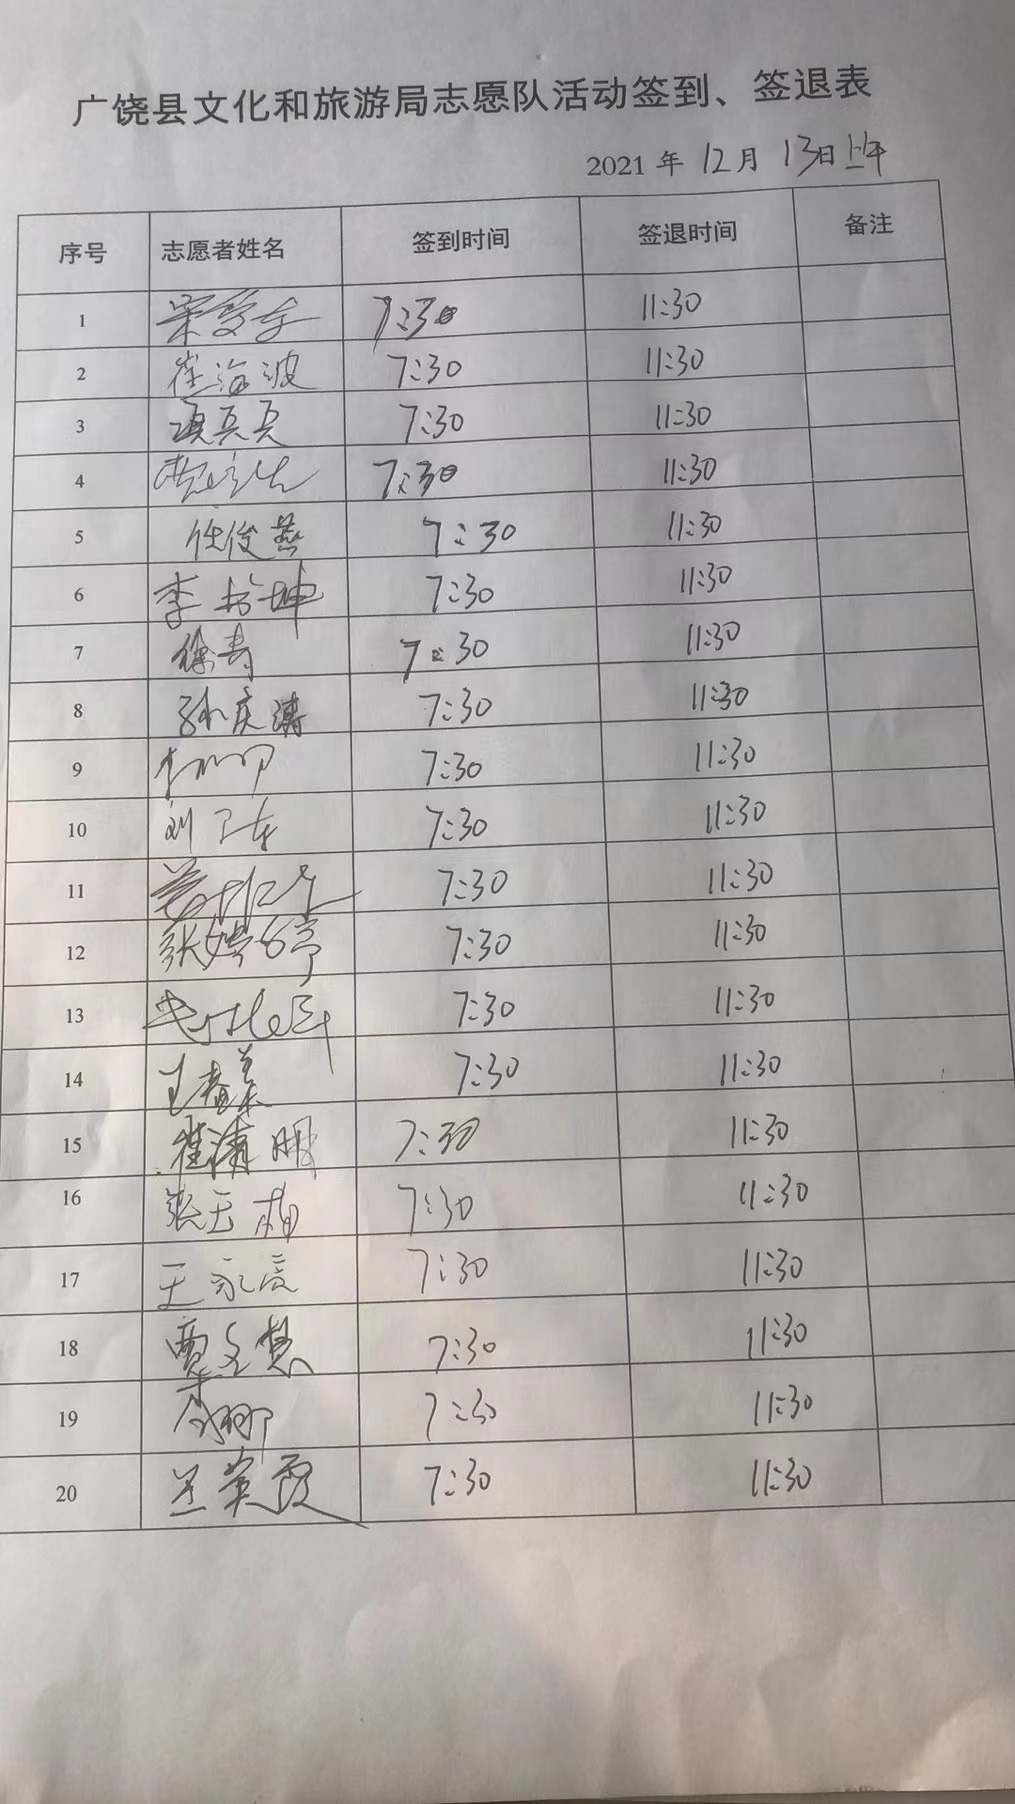 广饶县文化和旅游局志愿队活动签到、签退表
2021 年 12月 13日上午
序号 志愿者姓名 签到时间 签退时间 备注
1 7:30 11:30
2 崔海波 7:30 11:30
3 项兵兵 7:30 11:30
4 7:30 11:30
5 任俊燕 7:30 11:30
6 李 坤 7:30 11:30
7 徐寿 7:30 11:30
8 孙庆涛 7:30 11:30
9 7:30 11:30
10 刘卫东 7:30 11:30
11 7:30 11:30
12 张婷婷 7:30 11:30
13 7:30 11:30
14 王春美 7:30 11:30
15 崔清明 7:30 11:30
16 张玉梅 7:30 11:30
17 王永辰 7:30 11:30
18 贾文慧 7:30 11:30
19 7:30 11:30
20 兰英霞 7:30 11:30